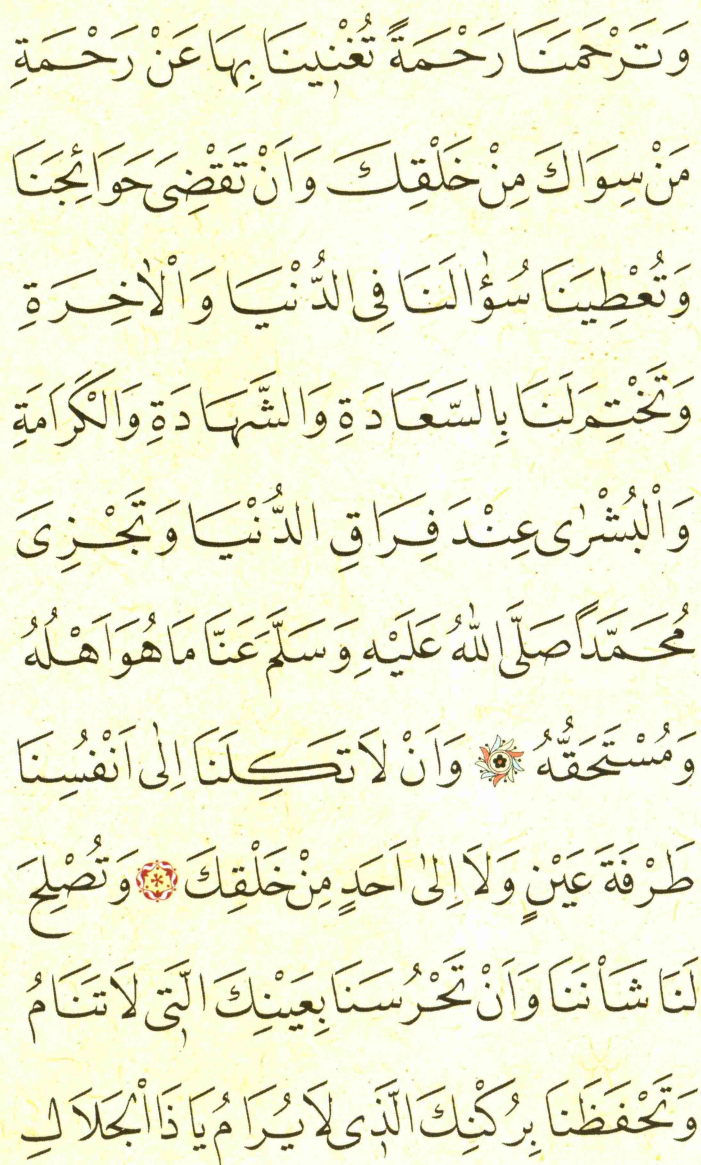 وَتَرْحَمَنَا رَحْمَةً تُغْنِينَا بِهَا عَنْ رَحْمَةِ
مَنْ سِوَاكَ مِنْ خَلْقِكَ وَاَنْ تَقْضِىَ حَوَائِجَنَا
وَتُعْطِيَنَا سُؤٰالَنَا فِى الدُّنْيَا وَاْلاٰخِرَةِ
وَتَخْتِمَ لَنَا بِالسَّعَادَةِ وَالشَّهَادَةِ وَالْكَرَامَةِ
وَاْلبُشْرٰى عِنْدَ فِرَاقِ الدُّنْيَا وَتَجْزِىَ
مُحَمَّدًا صَلَّى اللهُ عَلَيْهِ وَسَلَّمَ عَنَّا مَا هُوَ اَهْلُهُ
وَمُسْتَحَقُّهُ وَاَنْ لاَ تَكِلَنَا اِلٰى اَنْفُسِنَا
طَرْفَةَ عَيْنٍ وَلاَ اِلىٰ اَحَدٍ مِنْ خَلْقِكَ وَتُصْلِحَ
لَنَا شَاْنَنَا وَاَنْ تَحْرُسَنَا بِعَيْنِكَ الَّتِى لاَ تَنَامُ
وَتَحْفَظَنَا بِرُكْنِكَ الَّذِى لاَ يُرَامُ يَا ذَا اْلجَلاَلِ